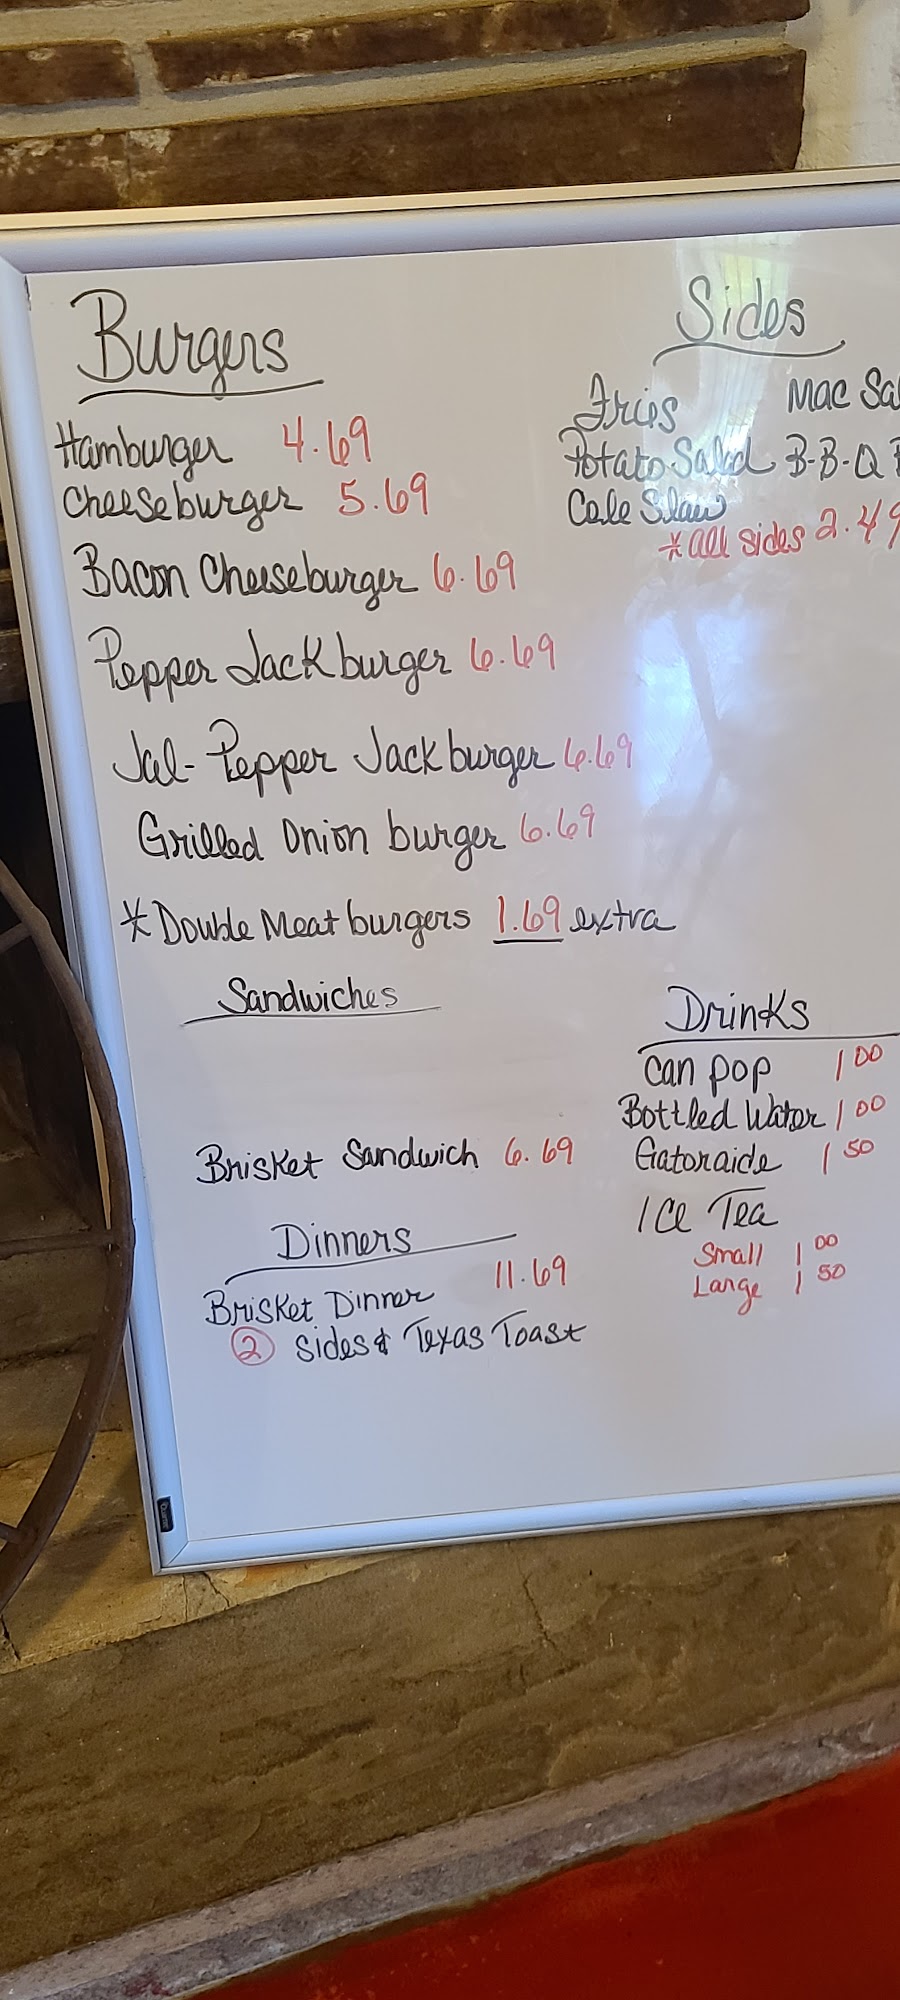 Burgers
Hamburger 4.69
Cheeseburger 5.69
Bacon Cheeseburger 6.69
Pepper Jack burger 6.69
Jal-Pepper Jack burger 6.69
Grilled Onion burger 6.69
* Double Meat burgers 1.69 extra
Sides
Fries Mac Sa
Potato Salad B-B-Q
Cole Slaw
* all sides 2.49
Sandwiches
Brisket Sandwich 6.69
Dinners
Brisket Dinner 11.69
2 sides & Texas Toast
Drinks
Can pop 1 00
Bottled Water 1 00
Gatoraide 1 50
Ice Tea
Small 1 00
Large 1 50